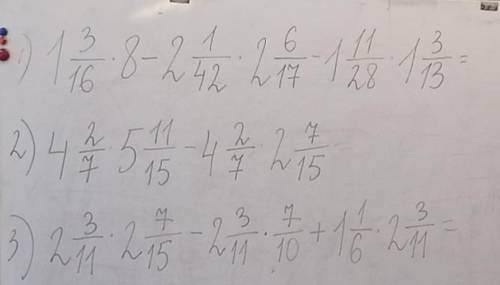 1) 1 3/16 · 8 - 2 1/42 · 2 6/17 - 1 11/28 · 1 3/13 =
2) 4 2/7 · 5 11/15 - 4 2/7 · 2 7/15
3) 2 3/11 · 2 7/15 - 2 3/11 · 7/10 + 1 1/6 · 2 3/11 =